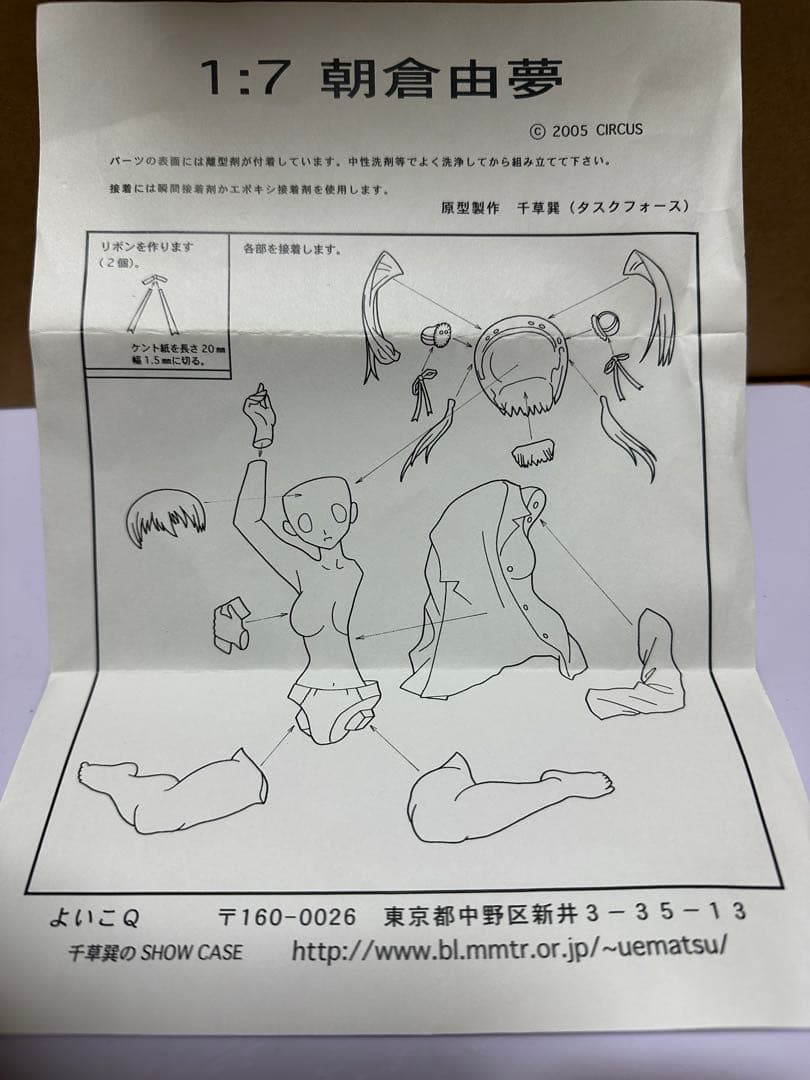 1:7 朝倉由夢
© 2005 CIRCUS
パーツの表面には離型剤が付着しています。中性洗剤等でよく洗浄してから組み立てて下さい。
接着には瞬間接着剤かエポキシ接着剤を使用します。
原型製作 千草巽（タスクフォース）
リボンを作ります
（２個）。
ケント紙を長さ20㎜
幅1.5㎜に切る。
各部を接着します。
よいこQ 〒160-0026 東京都中野区新井３－３５－１３
千草巽の SHOW CASE http://www.bl.mmtr.or.jp/~uematsu/